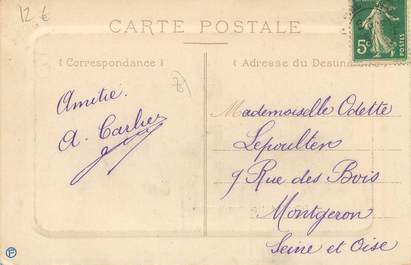 12 €
CARTE POSTALE
5c
Correspondance
Adresse du Destinataire
Amitié.
A. Carlier
Mademoiselle Odette
Lepoulten
9 Rue des Bois
Montgeron
Seine et Oise